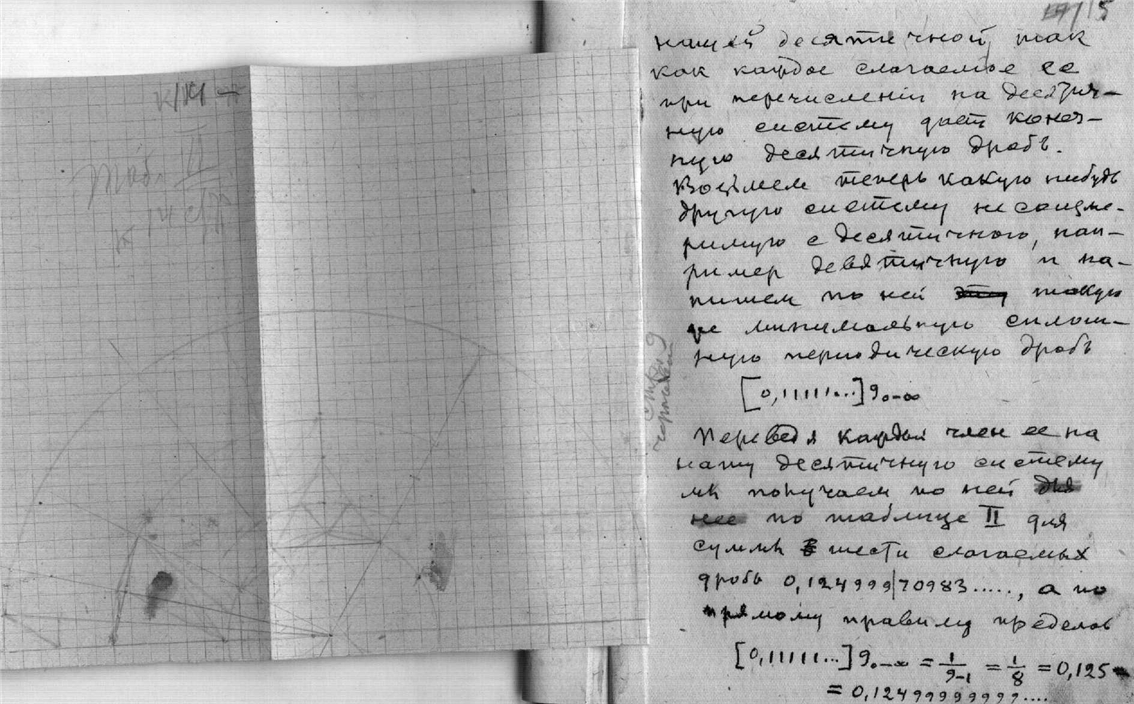 Таб. II
15
нашей десятичной, так
как каждое слагаемое ее
при перечислении на десятич-
ную систему дает конеч-
ную десятичную дробь.
Возьмем теперь какую нибудь
другую систему несоизме-
римую с десятичного, нап-
ример девятичную и на-
пишем по ней такую
же минимальную сплош-
ную периодическую дробь
[0,11111...]9₀₋∞
Переведя каждый член ее на
нашу десятичную систему
мы получаем по ней для
нее по таблице II для
суммы в шести слагаемых
дробь 0,124999|70983....., а по
прямому правилу пределов
[0,11111...]9₀₋∞ = 1/9-1 = 1/8 = 0,125
= 0,12499999999....